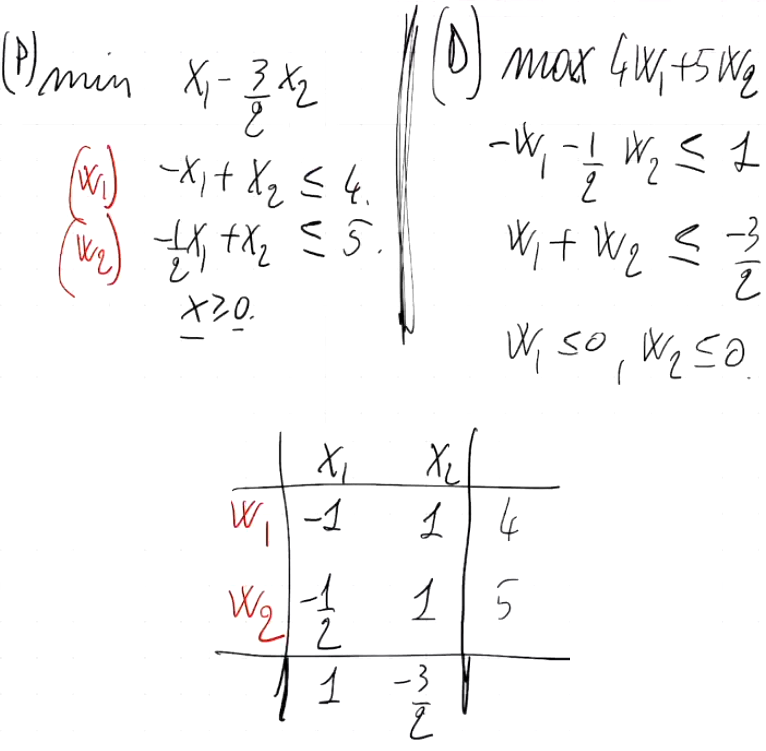 (P) min x₁ - 3/2 x₂
(w₁) -x₁ + x₂ ≤ 4.
(w₂) -1/2 x₁ + x₂ ≤ 5.
x ≥ 0.
(D) max 4w₁ + 5w₂
-w₁ - 1/2 w₂ ≤ 1
w₁ + w₂ ≤ -3/2
w₁ ≤ 0, w₂ ≤ 0.
x₁ x₂
w₁ -1 1 4
w₂ -1/2 1 5
1 -3/2